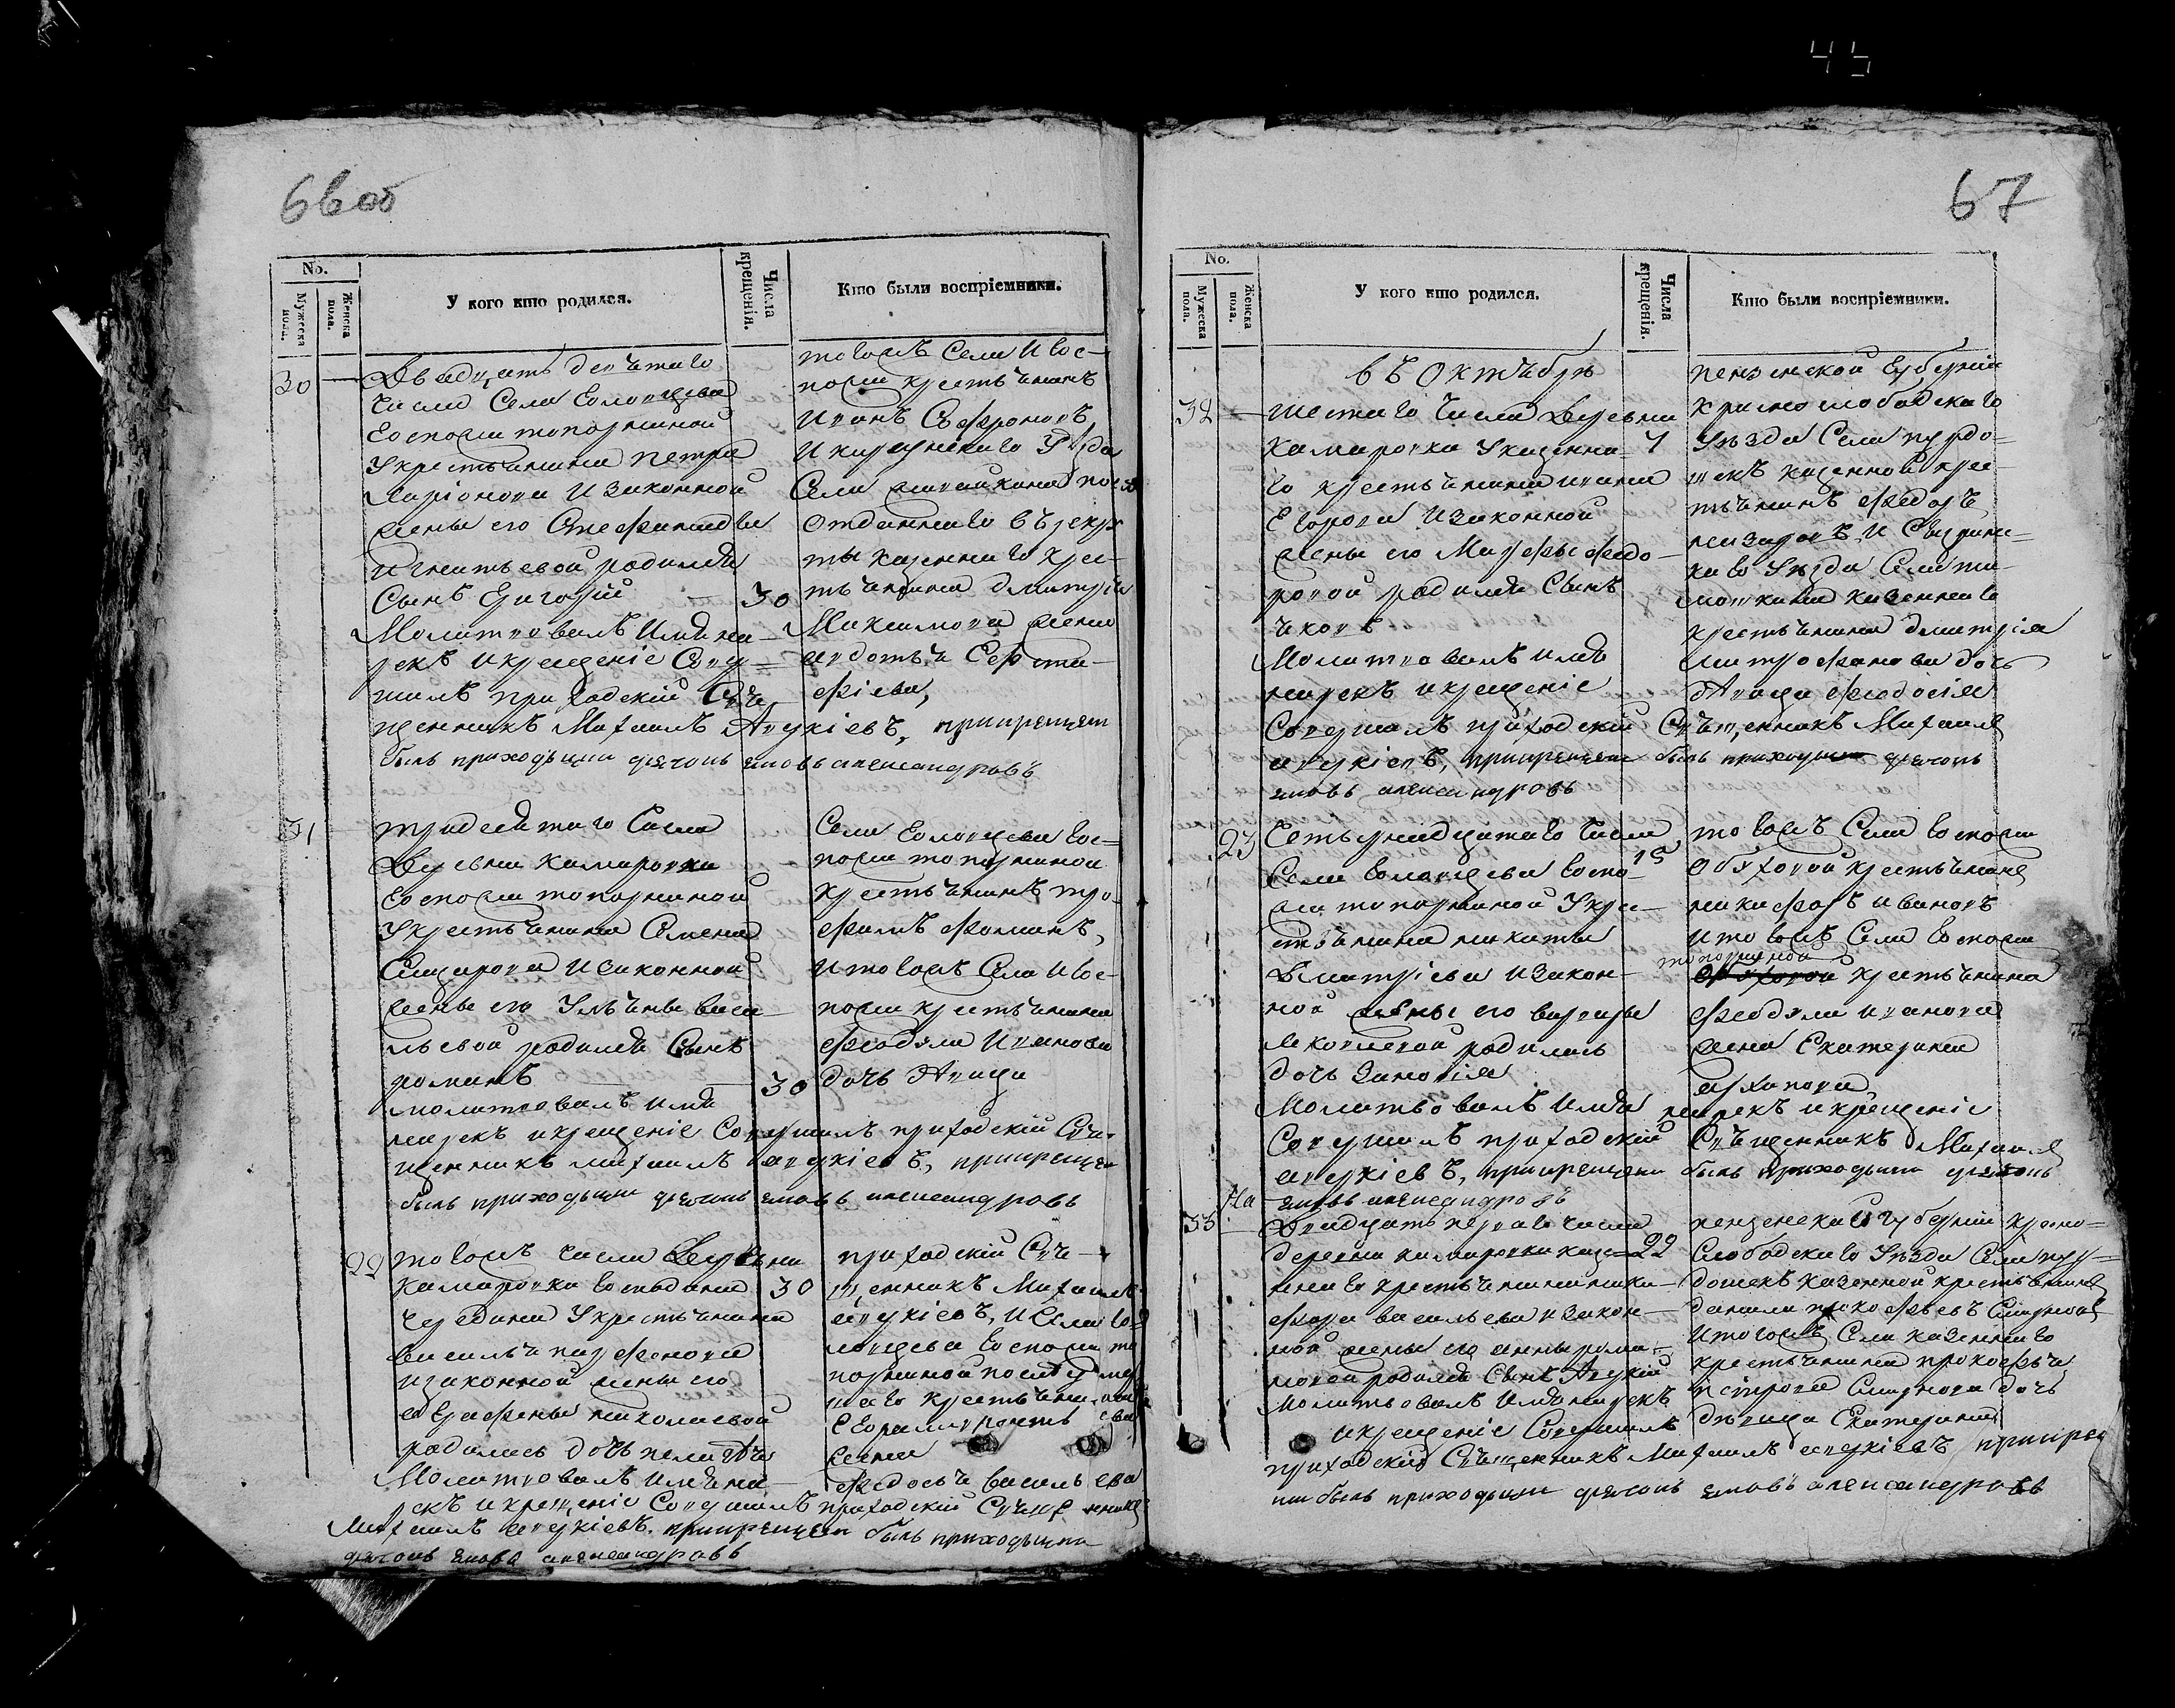 45
66 об
No.
Мужеска пола.
Женска пола.
У кого кто родился.
Числа крещенія.
Кто были воспріемники.
30
Двадцать девятаго
числа Села
Госпожи топорниной
У крестьянина петра
Ларіонова и законной
жены его Стефаниды
игнатьевой родился
Сынъ Григорій
30
Молитвовалъ имя на-
рекъ и крещеніе Совер=
шилъ приходскій Свя-
щенникъ Михаилъ Аверкіевъ, при крещеніи
былъ приходящи дьячокъ яковъ александровъ
тогожъ Села и гос-
пожи крестьянинъ
иванъ Софроновъ
Села
отданнаго въ рекру
ты казеннаго крес-
тьянина дмитрія
Максимова жена
авдотья
31
тридесятаго числа
Деревни камаровки
Госпожи топорниной
У крестьянина Семена
и законной
жены его Ульяны васи-
льевой родился Сынъ
романъ
30
молитвовалъ имя
нарекъ и крещеніе Совершилъ приходскій Свя-
щенникъ михаилъ аверкіевъ, при крещеніи
былъ приходящи дьячокъ яковъ александровъ
Села гос-
пожи топорниной
крестьянинъ тро-
фимъ фоминъ,
и тогожъ Села и гос-
пожи крестьянина
иванова
дочь дѣвица
22
тогожъ числа Деревни
камаровки господина
У крестьянина
василья парфенова
и законной жены его
евграфены николаевой
родилась дочь пелагѣя
30
Молитвовалъ имя на-
рекъ и крещеніе Совершилъ приходскій Священникъ
Михаилъ аверкіевъ. при крещеніи былъ приходящи
дьячокъ яковъ александровъ
приходскій Свя-
щенникъ Михаилъ
аверкіевъ, и Села
госпожи то
порниной
крестьянина
жена
федосья васильева
67
No.
Мужеска пола.
Женска пола.
У кого кто родился.
Числа крещенія.
Кто были воспріемники.
въ Октябрѣ
32
шестаго числа Деревни
камаровки У казенна-
го крестьянина ивана
Егорова и законной
жены его Марфы федо-
ровой родился Сынъ
яковъ
7
Молитвовалъ имя
нарекъ и крещеніе
Совершилъ приходскій Священникъ Михаилъ
аверкіевъ, при крещеніи былъ приходящи дьячокъ
яковъ александровъ
пензенской губерніи
краснослободскаго
Уѣзда Села пурдо-
шекъ казенной крес-
тьянинъ федоръ
и Сызранс-
каго Уѣзда Села
казеннаго
крестьянина дмитрія
митрофанова дочь
дѣвица феодосія
23
четырнадцатаго числа
Села Госпо-
жи топорниной У кре-
стьянина никиты
Дмитріева и закон-
ной жены его варвары
яковлевой родилась
дочь Зиновія
15
Молитвовалъ имя нарекъ и крещеніе
Совершилъ приходскій Священникъ Михаилъ
аверкіевъ, при крещеніи былъ приходящи дьячокъ
яковъ александровъ
тогожъ Села госпожи
Обуховой крестьянинъ
никифоръ ивановъ
и тогожъ Села госпожи
топорниной
Обуховой крестьянина
иванова
жена Екатерина
архипова
33
На
Двадцать перваго числа
деревни камаровки казе=
ннаго крестьянина ники-
фора васильева и закон-
ной жены его анны рома-
новой родился Сынъ Аверкій
22
Молитвовалъ имя нарекъ
и крещеніе Совершилъ
приходскій Священникъ Михаилъ аверкіевъ при креще
ніи былъ приходящи дьячокъ яковъ александровъ
пензенской губерніи красно=
слободскаго Уѣзда Села пур=
дошекъ казенной крестьянинъ
данила прокофьевъ Смирновъ
и тогожъ Села казеннаго
крестьянина прокофья
петрова Смирнова дочь
дѣвица Екатерина